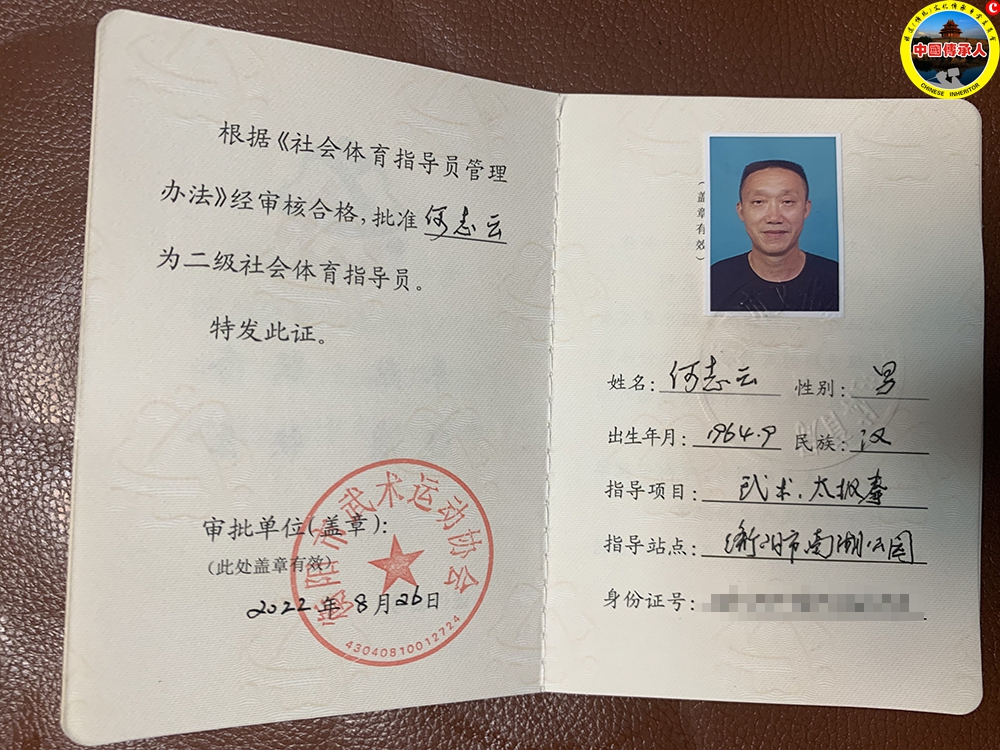 根据《社会体育指导员管理
办法》经审核合格,批准何志云
为二级社会体育指导员。
特发此证。
审批单位(盖章):
(此处盖章有效)
2022年8月26日
衡阳市武术运动协会
43040810012724
(盖章有效)
姓名:何志云 性别:男
出生年月:1964.9 民族:汉
指导项目:武术、太极拳
指导站点:衡阳市南湖公园
身份证号:
中國傳承人
CHINESE INHERITOR
C